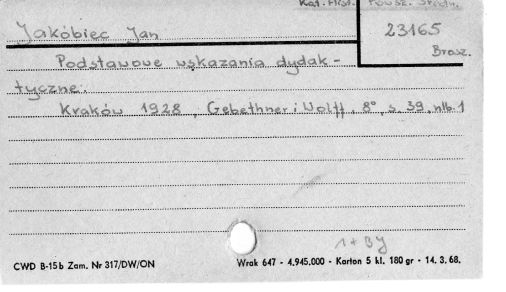 Jakóbiec Jan
23165
Brosz.
Podstawowe wskazania dydak-
tyczne.
Kraków 1928, Gebethner i Wolff, 8°, s. 39, nlb. 1
CWD B-15b Zam. Nr 317/DW/ON
Wrak 647 - 4.945.000 - Karton 5 kl. 180 gr - 14. 3. 68.